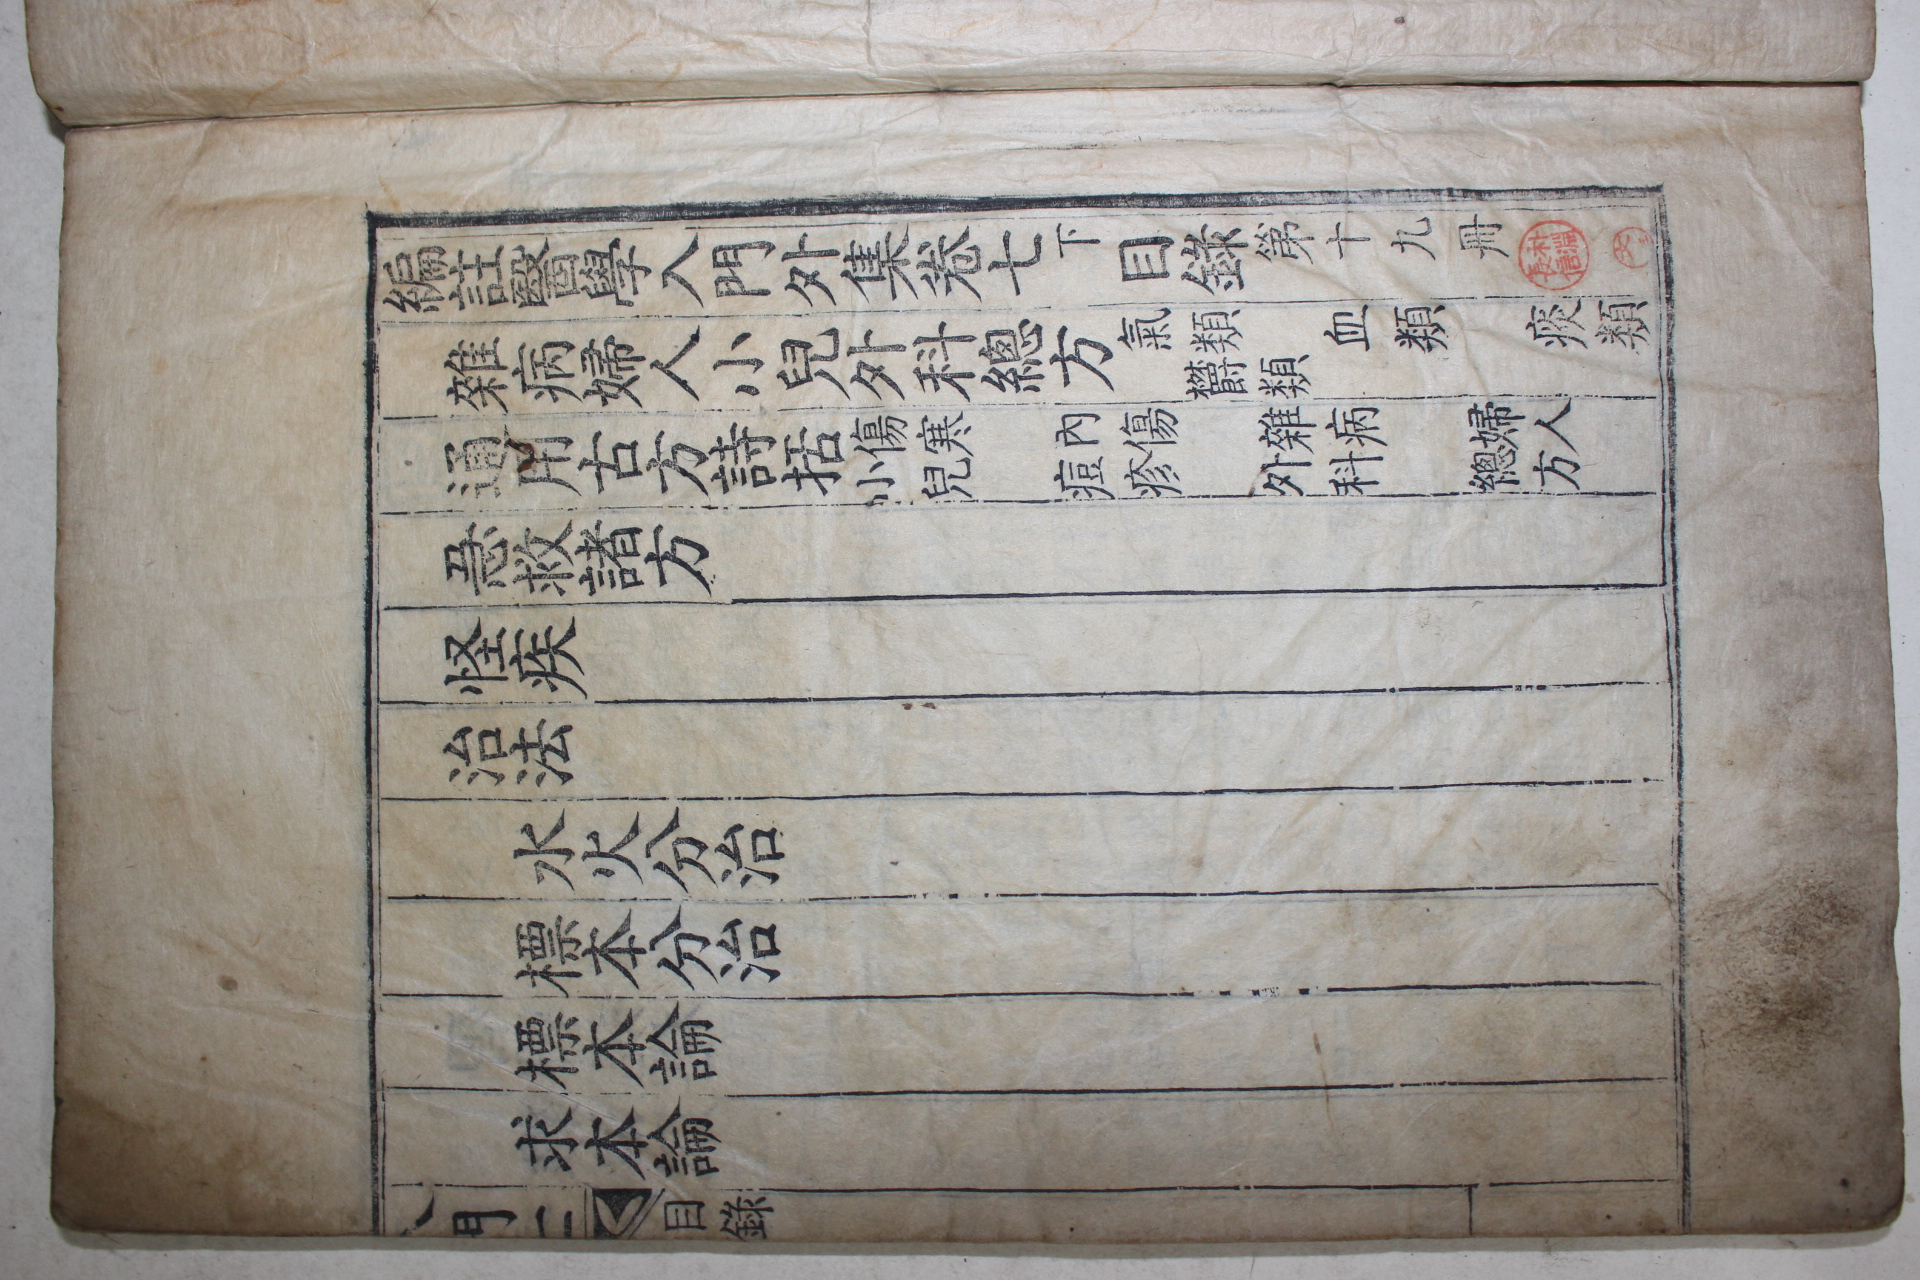 編註醫學入門外集卷七下目錄第十九冊
雜病婦人小兒外科總方氣類 血類 痰類
欝類
通用古方詩括傷寒 內傷 雜病 婦人
小兒 痘疹 外科 總方
急救諸方
怪疾
治法
水火分治
標本分治
標本論
求本論
門
目錄